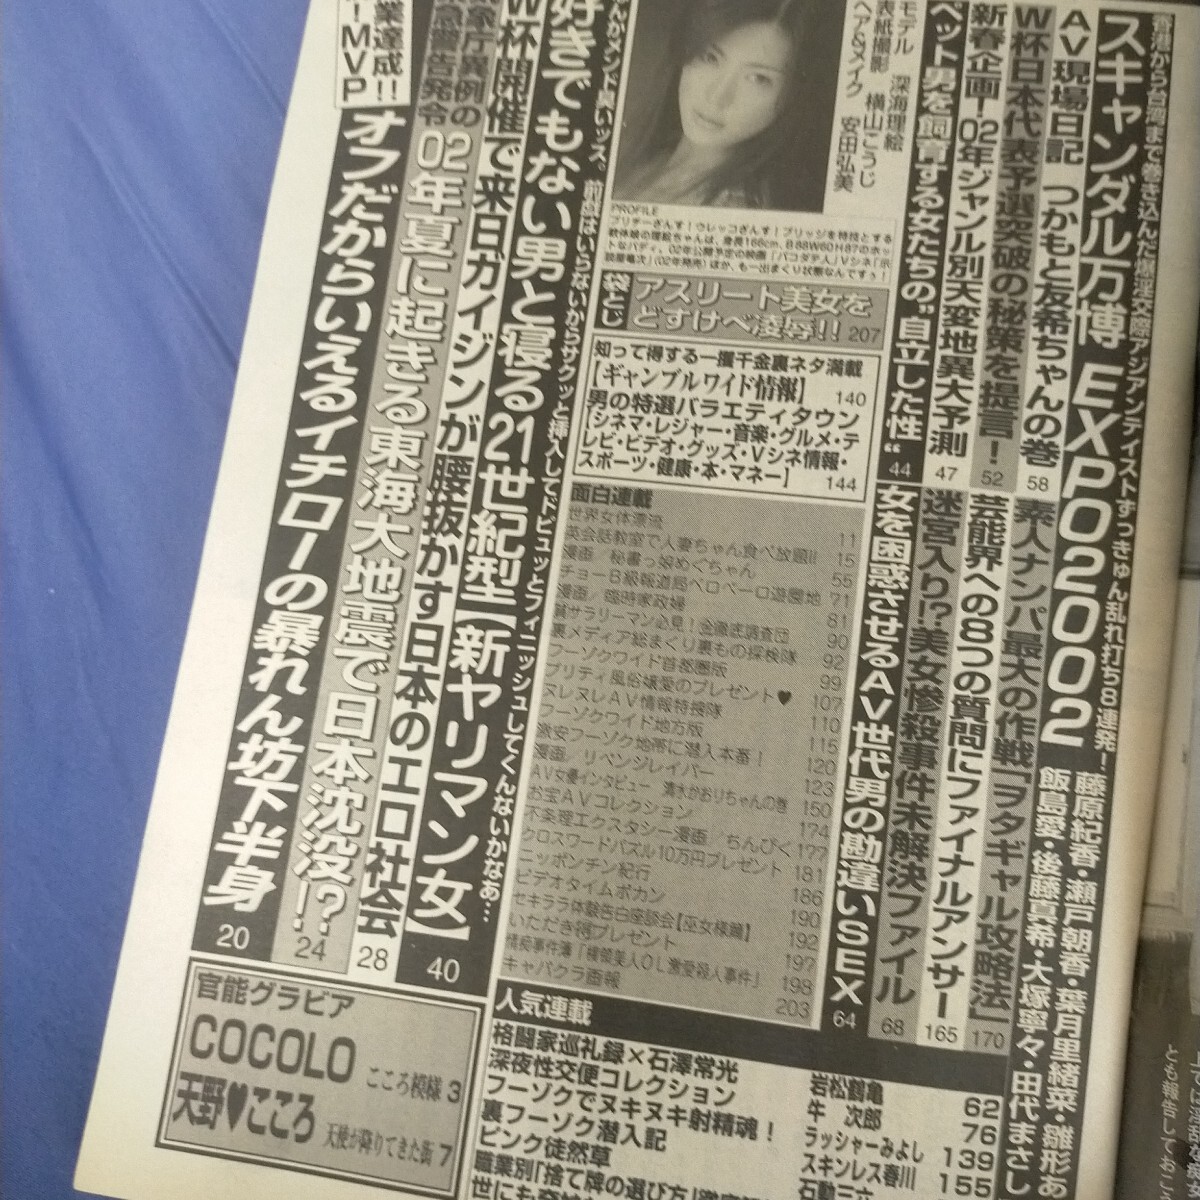 香港から台湾まで巻き込んだ爆淫交際アジアンテイストずっきゅん乱れ打ち58連発!
スキャンダル万博 EXPO2002
藤原紀香・瀬戸朝香・葉月里緒菜・雛形あ
飯島愛・後藤真希・大塚寧々・田代まさし
AV現場日記 つかもと友希ちゃんの巻 58
W杯日本代表予選突破の秘策を提言! 52
新春企画!02年ジャンル別天変地異大予測 47
ペット男を飼育する女たちの“自立した性“ 44
素人ナンパ最大の作戦「ヲタギャル攻略法」 170
芸能界への8つの質問にファイナルアンサー 165
迷宮入り!?美女惨殺事件未解決ファイル 68
女を困惑させるAV世代男の勘違いSEX 64
モデル 深海理絵
表紙撮影 横山こうじ
ヘア&メイク 安田弘美
PROFILE
プリチーざんす!ウレッコざんす!ブリッジを特技とする
軟体娘の理絵ちゃんは、身長166cm、B88W60H87のホッ
トなバディ。02年公開予定の映画「パコダテ人」Vシネ「示
談屋竜次」(02年発売)ほか、も一出まくり状態なんですぅ!
袋とじ
アスリート美女を
どすけべ凌辱!! 207
知って得する一攫千金裏ネタ満載
【ギャンブルワイド情報】 140
男の特選バラエティタウン
【シネマ・レジャー・音楽・グルメ・テ
レビ・ビデオ・グッズ・Vシネ情報・
スポーツ・健康・本・マネー】 144
面白連載
世界女体漂流 11
英会話教室で人妻ちゃん食べ放題!! 15
漫画/秘書っ娘めぐちゃん 55
チョーB級報道局ペロペーロ遊園地 71
漫画/臨時家政婦 81
貧サラリーマン必見!金融底調査団 90
裏メディア総まくり裏もの探検隊 92
フーゾクワイド首都圏版 99
プリティ風俗嬢愛のプレゼント♥ 107
ヌレヌレAV情報特捜隊 110
フーゾクワイド地方版 115
激安フーゾク地帯に潜入本番! 120
漫画/リベンジレイパー 123
AV女優インタビュー 清水かおりちゃんの巻 150
お宝AVコレクション 174
不条理エクスタシー漫画/ちんぴく 177
クロスワードパズル10万円プレゼント 181
ニッポンチン紀行 186
ビデオタイムボカン 190
セキララ体験告白座談会【巫女様篇】 192
いただき得プレゼント 197
情痴事件簿「横領美人OL激愛殺人事件」 198
キャバクラ画報 203
前戯はいらないからサクッと挿入してドビュッとフィニッシュしてくんないかなぁ…
好きでもない男と寝る21世紀型【新ヤリマン女】 40
W杯開催で来日ガイジンが腰抜かす日本のエロ社会 28
庁異例の
警告発令
02年夏に起きる東海大地震で日本沈没!? 24
業達成!!
MVP
オフだからいえるイチローの暴れん坊下半身 20
官能グラビア
COCOLO こころ模様 3
天野♥こころ 天使が降りてきた街 7
人気連載
格闘家巡礼録×石澤常光 岩松鶴亀 62
深夜性交便コレクション 牛 次郎 76
フーゾクでヌキヌキ射精魂! ラッシャーみよし 139
裏フーゾク潜入記 スキンレス春川 155
ピンク徒然草
職業別「捨て牌の選び方」